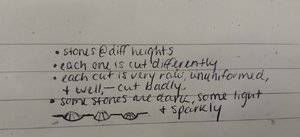 • stones @ diff heights
• each one is cut differently
• each cut is very raw, ununiformed,
+ well, – cut badly.
• some stones are dark, some light
+ sparkly